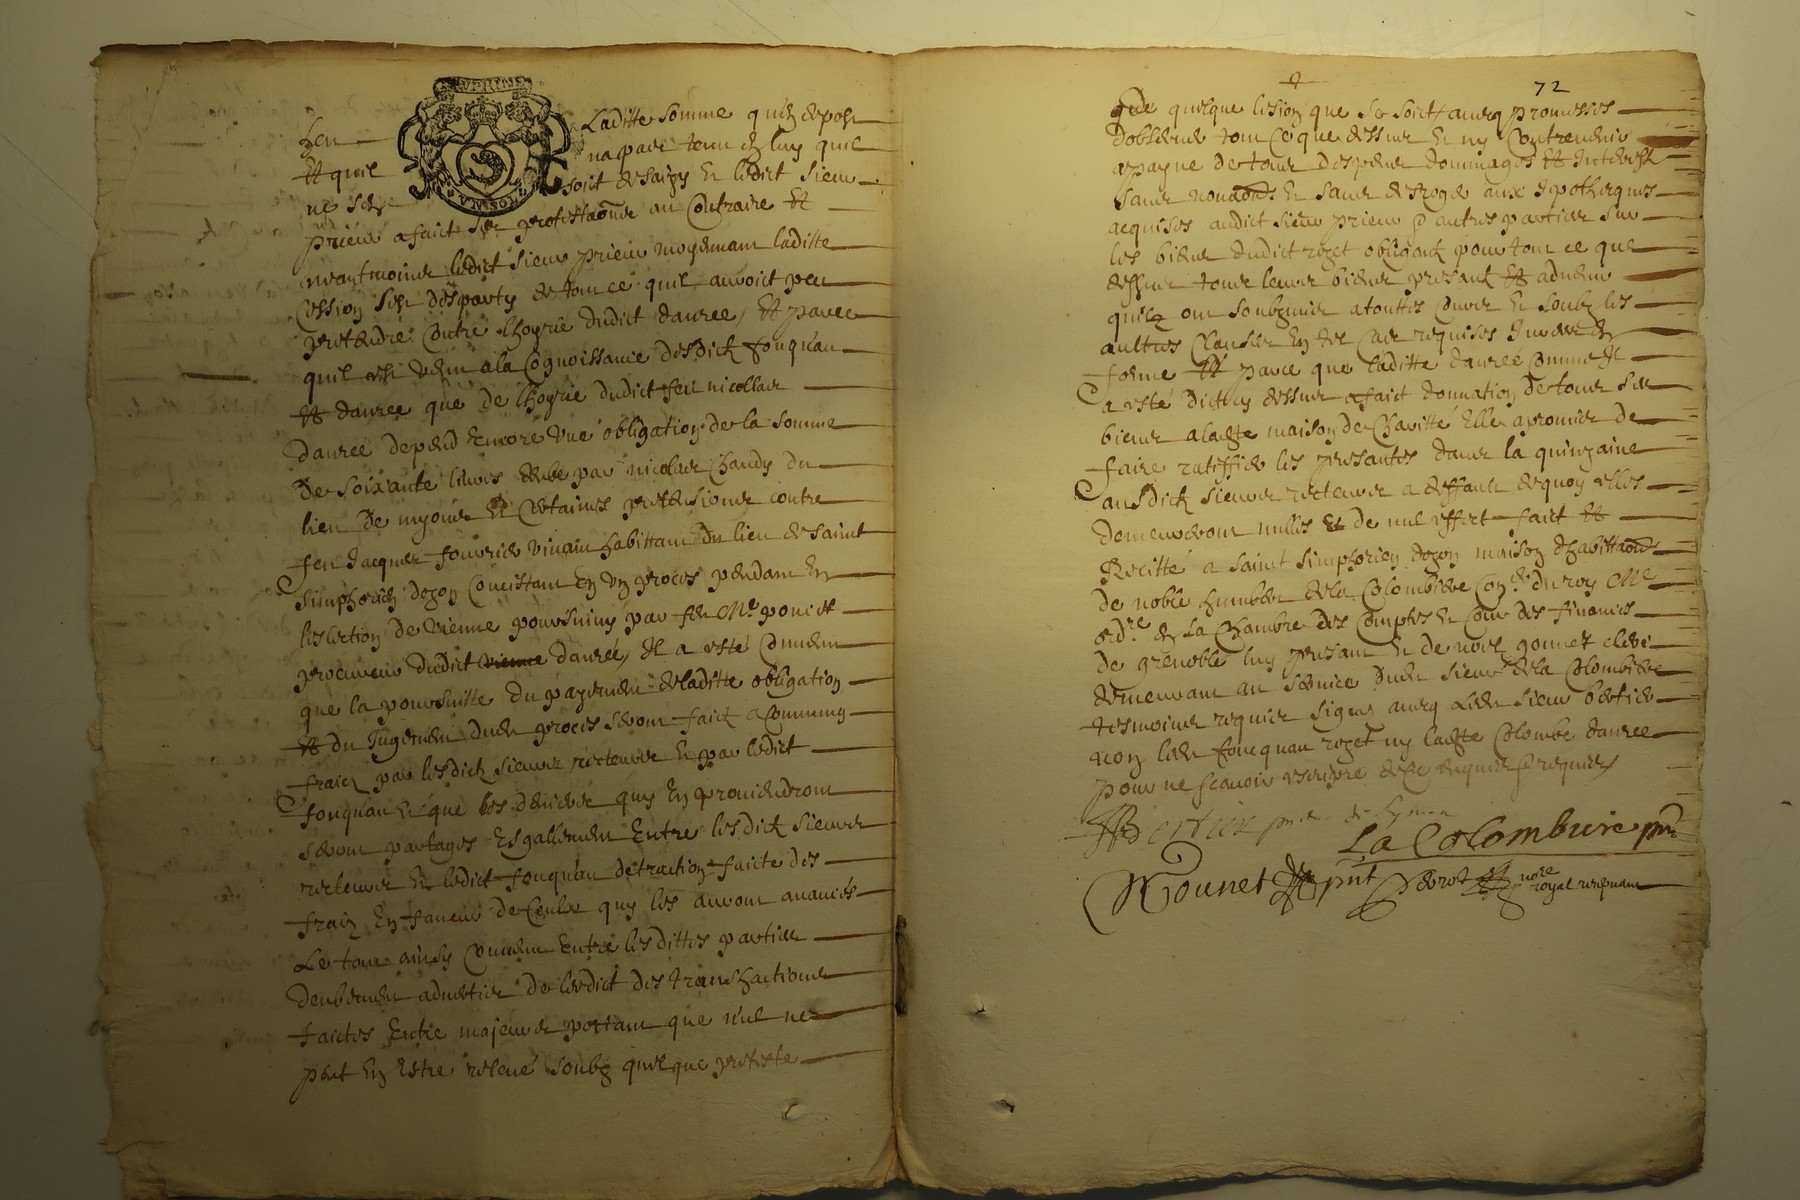 DAVPHINE
heu laditte somme quil depose
Et quil na pas tenu à luy quil
ne se soit desaizy et ledict sieur
prieur a faict ses protestaons au contraire Et
neantmoings ledict sieur prieur moyenant laditte
Cession sest despartys de tout ce quil auroit peu
pretendre contre lhoyrie dudict dauree, Et parce
quil est venu a la Cognoissance desdictz fonquan
Et dauree que de lhoyrie dudict feu nicollas
dauree depend encore vne obligation de la somme
De soixante liures deube par nicolas Chardy du
lieu De myons Et certaines pretensions contre
feu Jacques fourrier viuain habittant du lieu de saint
simphorien dozon Consistant En vn proces pendant En
leslection de vienne poursuiuy par feu Me ponict
procureur dudict dauree, Il a esté Conuenu
que la poursuitte du payement de laditte obligation
Et du Jugement dudit proces seront faictz a Communs
fraictz par lesdictz sieurs recteurs et par ledict
fonquan et que les deniers quy En prouiendront
seront partages Esgallement Entre lesdictz sieurs
recteurs Et ledict fonquan detraction faicte des
fraiz En faueur de Ceulx quy les auront auancés
Le tout ainsy Conuenu Entre lesdittes parties
deubement aduerties de ledict des transhactions
faictes Entre majeurs portant que nul ne
peut En Estre releué soubz quelque pretexte
2
72
que quelque lesion que se soict auecq promesses
dobserver tout Ce que dessus et ny Contreuenir
a payne de tous despens dommages Et Interest
sans nouaon Et sans deroger aux Ipotheques
acquises audict sieur prieur et autres parties sur
les biens dudict roget obligeant pour tout ce que
dessus tous leurs biens presant Et aduenir
quilz ont soubzmis a touttes Cours et soubz les
aultres Clauses En tel cas requises Inserer En
forme Et parce que laditte dauree Comme Il
a esté dict cy dessus a faict donnation de tous ses
biens a ladte maison de Charitté Elle a promis de
faire ratiffier les presantes dans la quinzaine
ausdictz sieurs recteurs a deffault dequoy elles
demeureront nulles et de nul effect faict Et
Recitté a saint simphorien dozon maison dhabittaon
de noble humbert de la Colombiere Conr du roy Me
ordre En La Chambre des Comptes et Cour des finances
de grenoble luy presant Et de noel gounet clerc
demeurant au seruice dudit sieur de la Colombiere
tesmoins requis signes auecq ledit sieur bertier
non ledit foucquan roget ny ladte Colombe dauree
pour ne scauoir escripre de ce enquis et requis
Bertier
La Colombiere pnt
Nounet pnt
nore
royal recepuant